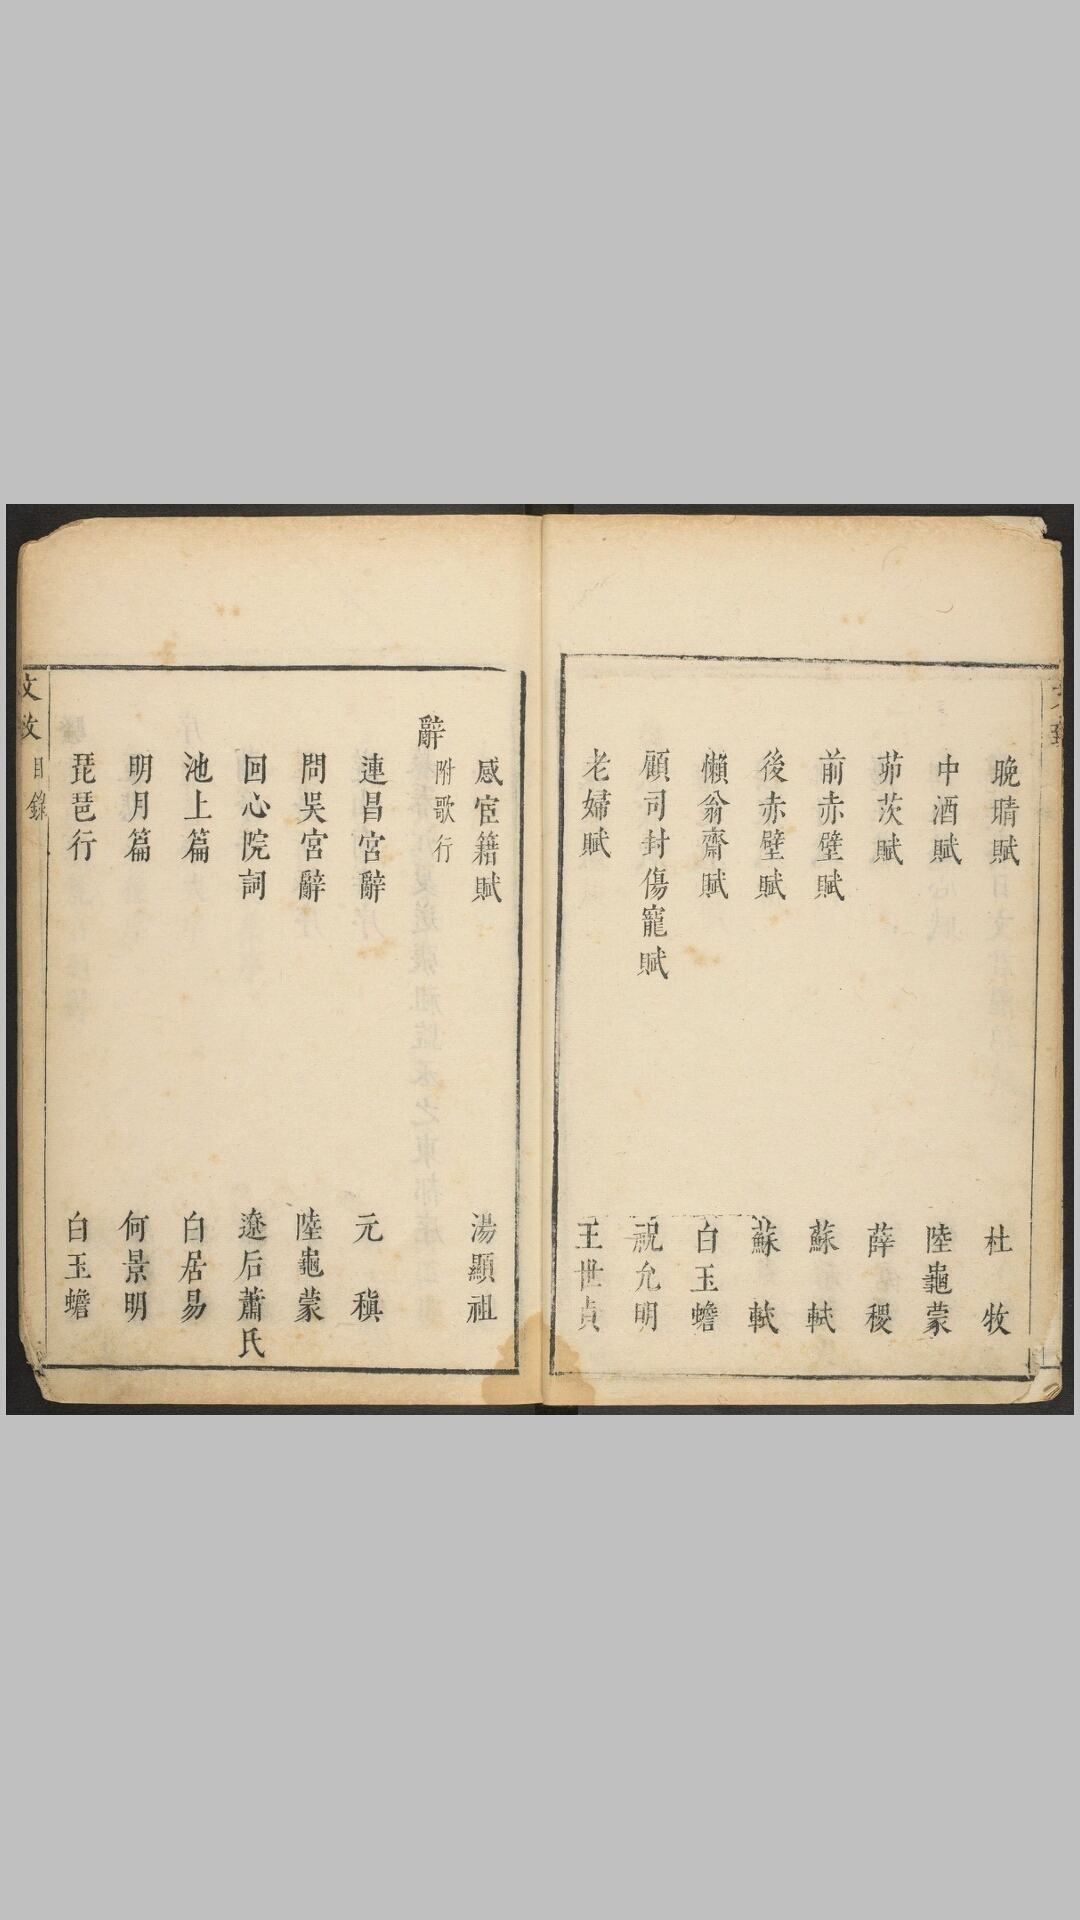 晚晴賦 杜牧
中酒賦 陸龜蒙
茆茨賦 薛稷
前赤壁賦 蘇軾
後赤壁賦 蘇軾
懶翁齋賦 白玉蟾
顧司封傷寵賦 祝允明
老婦賦 王世貞
感宦籍賦 湯顯祖
辭 附歌行
連昌宮辭 元稹
問吳宮辭 陸龜蒙
回心院詞 遼后蕭氏
池上篇 白居易
明月篇 何景明
琵琶行 白玉蟾
目錄